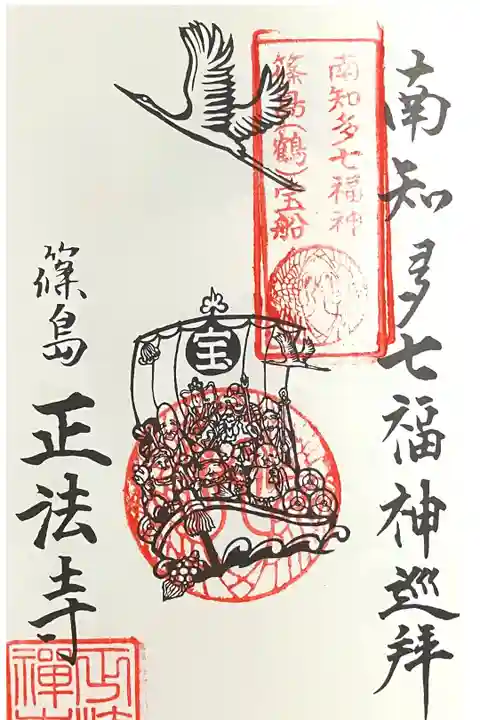 南知多七福神巡拝
南知多七福神
篠島(鶴)宝船
宝
篠島
正法寺